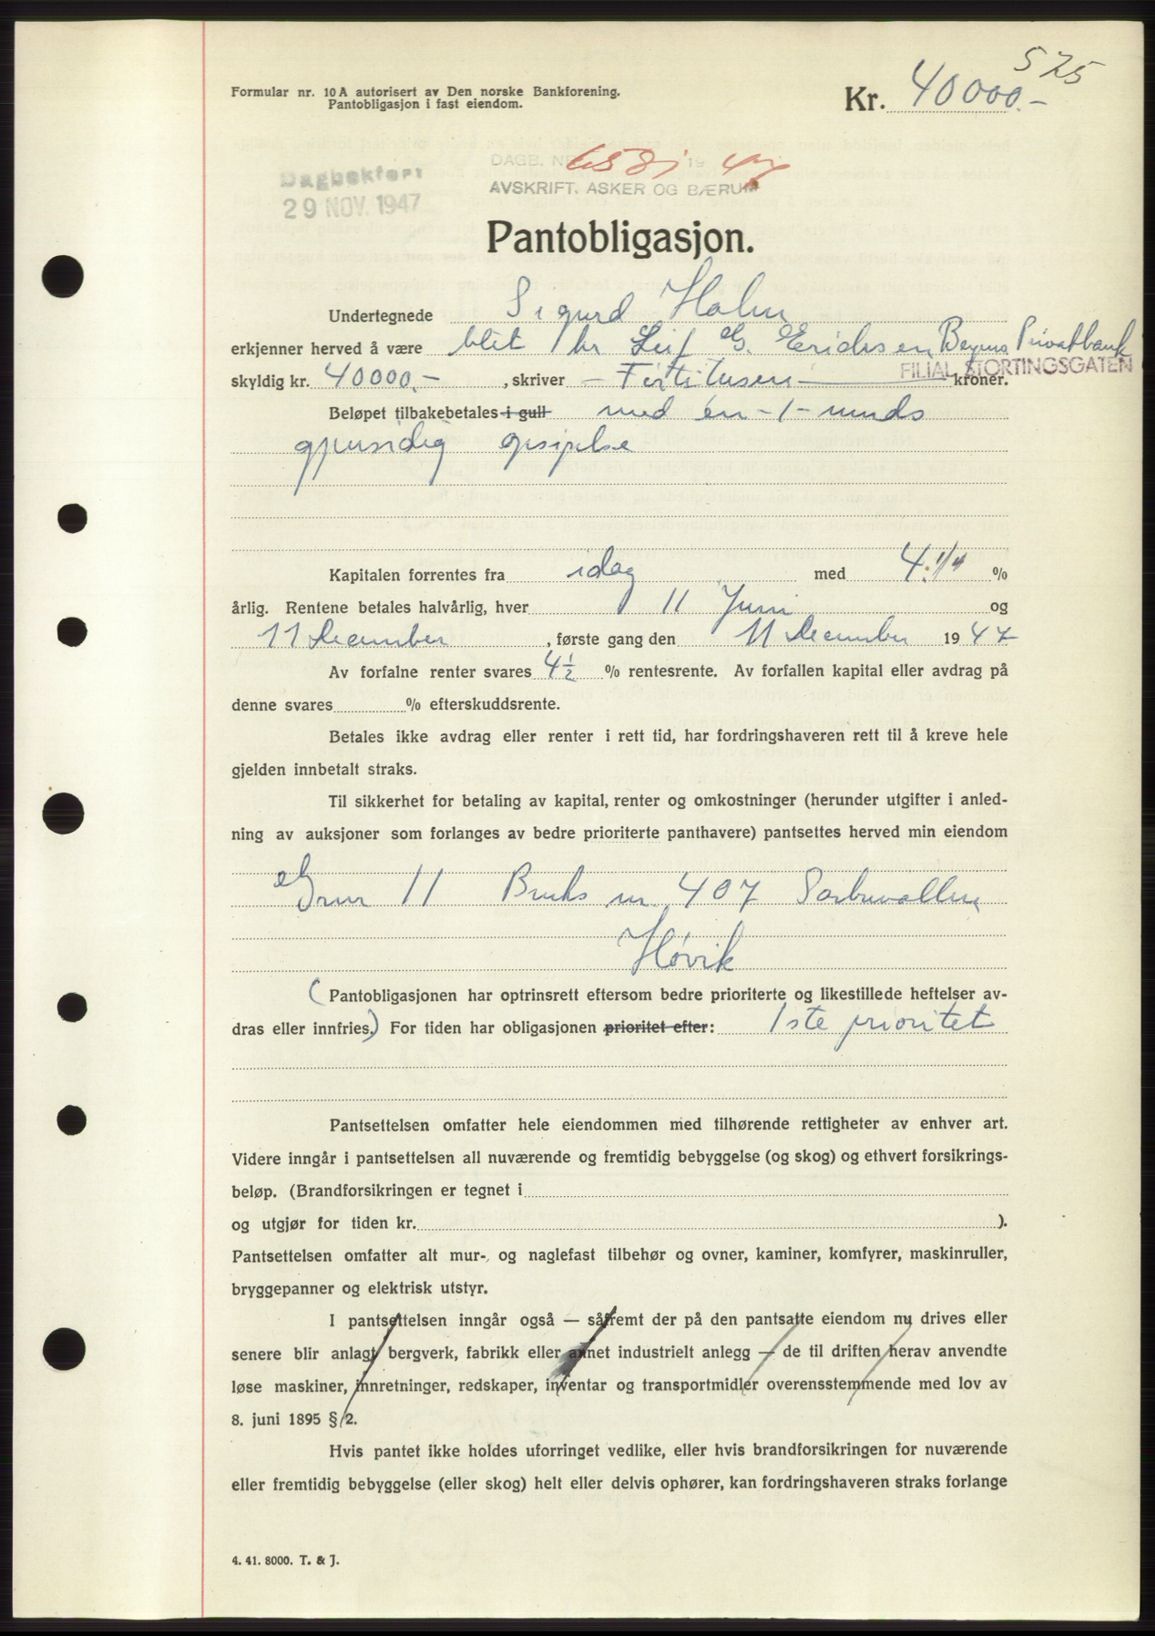 525
Formular nr. 10 A autorisert av Den norske Bankforening.
Pantobligasjon i fast eiendom.
Kr. 40 000.-
DAGB. NR. 6581 19 47
AVSKRIFT. ASKER OG BÆRUM
Dagbokført
29 NOV. 1947
Pantobligasjon.
Undertegnede Sigurd Holm
erkjenner herved å være blit hr Leif G. Erichsen, Bergens Privatbank
FILIAL STORTINGSGATEN
skyldig kr. 40000.- , skriver – Førtitusen – kroner.
Beløpet tilbakebetales i gull med én -1- mnds
gjensidig opsigelse
Kapitalen forrentes fra idag med 4.1/4 %
årlig. Rentene betales halvårlig, hver 11 Juni og
11 December , første gang den 11 December 1947
Av forfalne renter svares 4 1/2 % rentesrente. Av forfallen kapital eller avdrag på
denne svares % efterskuddsrente.
Betales ikke avdrag eller renter i rett tid, har fordringshaveren rett til å kreve hele
gjelden innbetalt straks.
Til sikkerhet for betaling av kapital, renter og omkostninger (herunder utgifter i anled-
ning av auksjoner som forlanges av bedre prioriterte panthavere) pantsettes herved min eiendom
Gnr 11 Bruks nr. 407
Høvik
(Pantobligasjonen har optrinsrett eftersom bedre prioriterte og likestillede heftelser av-
dras eller innfries.) For tiden har obligasjonen prioritet efter: 1ste prioritet
Pantsettelsen omfatter hele eiendommen med tilhørende rettigheter av enhver art.
Videre inngår i pantsettelsen all nuværende og fremtidig bebyggelse (og skog) og ethvert forsikrings-
beløp. (Brandforsikringen er tegnet i
og utgjør for tiden kr. ).
Pantsettelsen omfatter alt mur-, og naglefast tilbehør og ovner, kaminer, komfyrer, maskinruller,
bryggepanner og elektrisk utstyr.
I pantsettelsen inngår også — såfremt der på den pantsatte eiendom nu drives eller
senere blir anlagt bergverk, fabrikk eller annet industrielt anlegg — de til driften herav anvendte
løse maskiner, innretninger, redskaper, inventar og transportmidler overensstemmende med lov av
8. juni 1895 § 2.
Hvis pantet ikke holdes uforringet vedlike, eller hvis brandforsikringen for nuværende
eller fremtidig bebyggelse (eller skog) helt eller delvis ophører, kan fordringshaveren straks forlange
4. 41. 8000. T. & J.